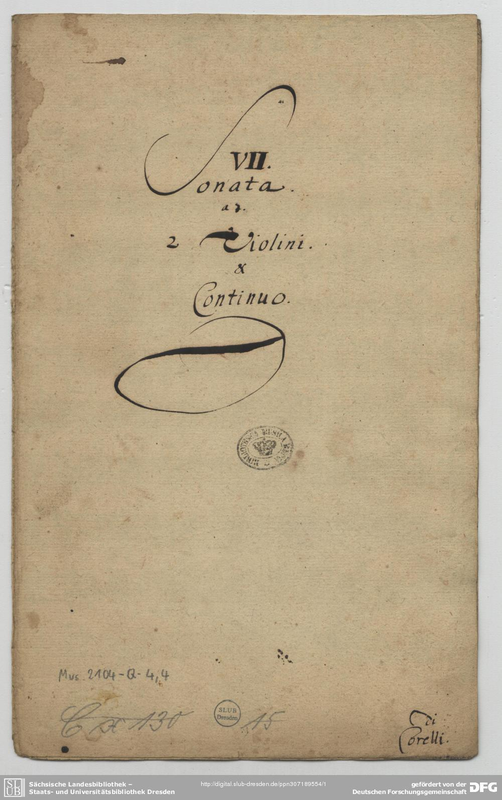 VII.
Sonata.
a 3.
2 Violini.
&
Continuo.
Mus. 2104-Q-4,4
Cx 130
SLUB
Dresden
15
di
Corelli.
Sächsische Landesbibliothek –
Staats- und Universitätsbibliothek Dresden
http://digital.slub-dresden.de/ppn307189554/1
gefördert von der
Deutschen Forschungsgemeinschaft
DFG